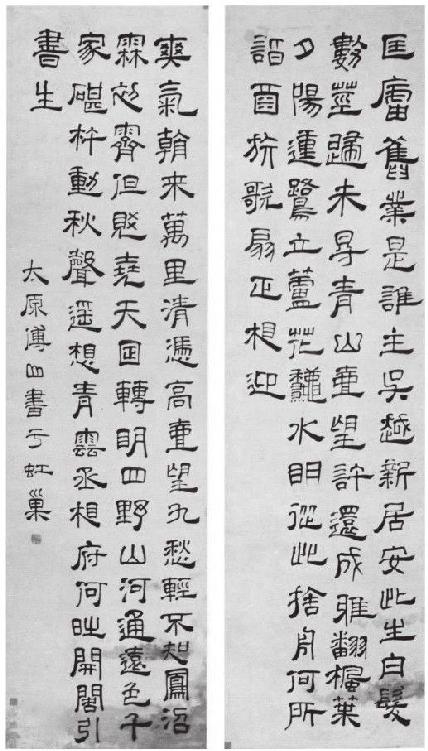 匡廬舊業是誰主吳越新居安此生白髮
數莖歸未㝵青山壹望許還成雅翻楓葉
夕陽𨔝鷺立蘆花龝水明從此捨舟何所
詣酉旂歌扇正相迎
爽氣朝來萬里清憑高壹望九愁輕不知鳳沼
霖初霽但覺堯天日轉明四野山河通遠色千
家碪杵動秋聲遥想青雲丞相府何旹開閣引
書生
太原傅山書于虹巢